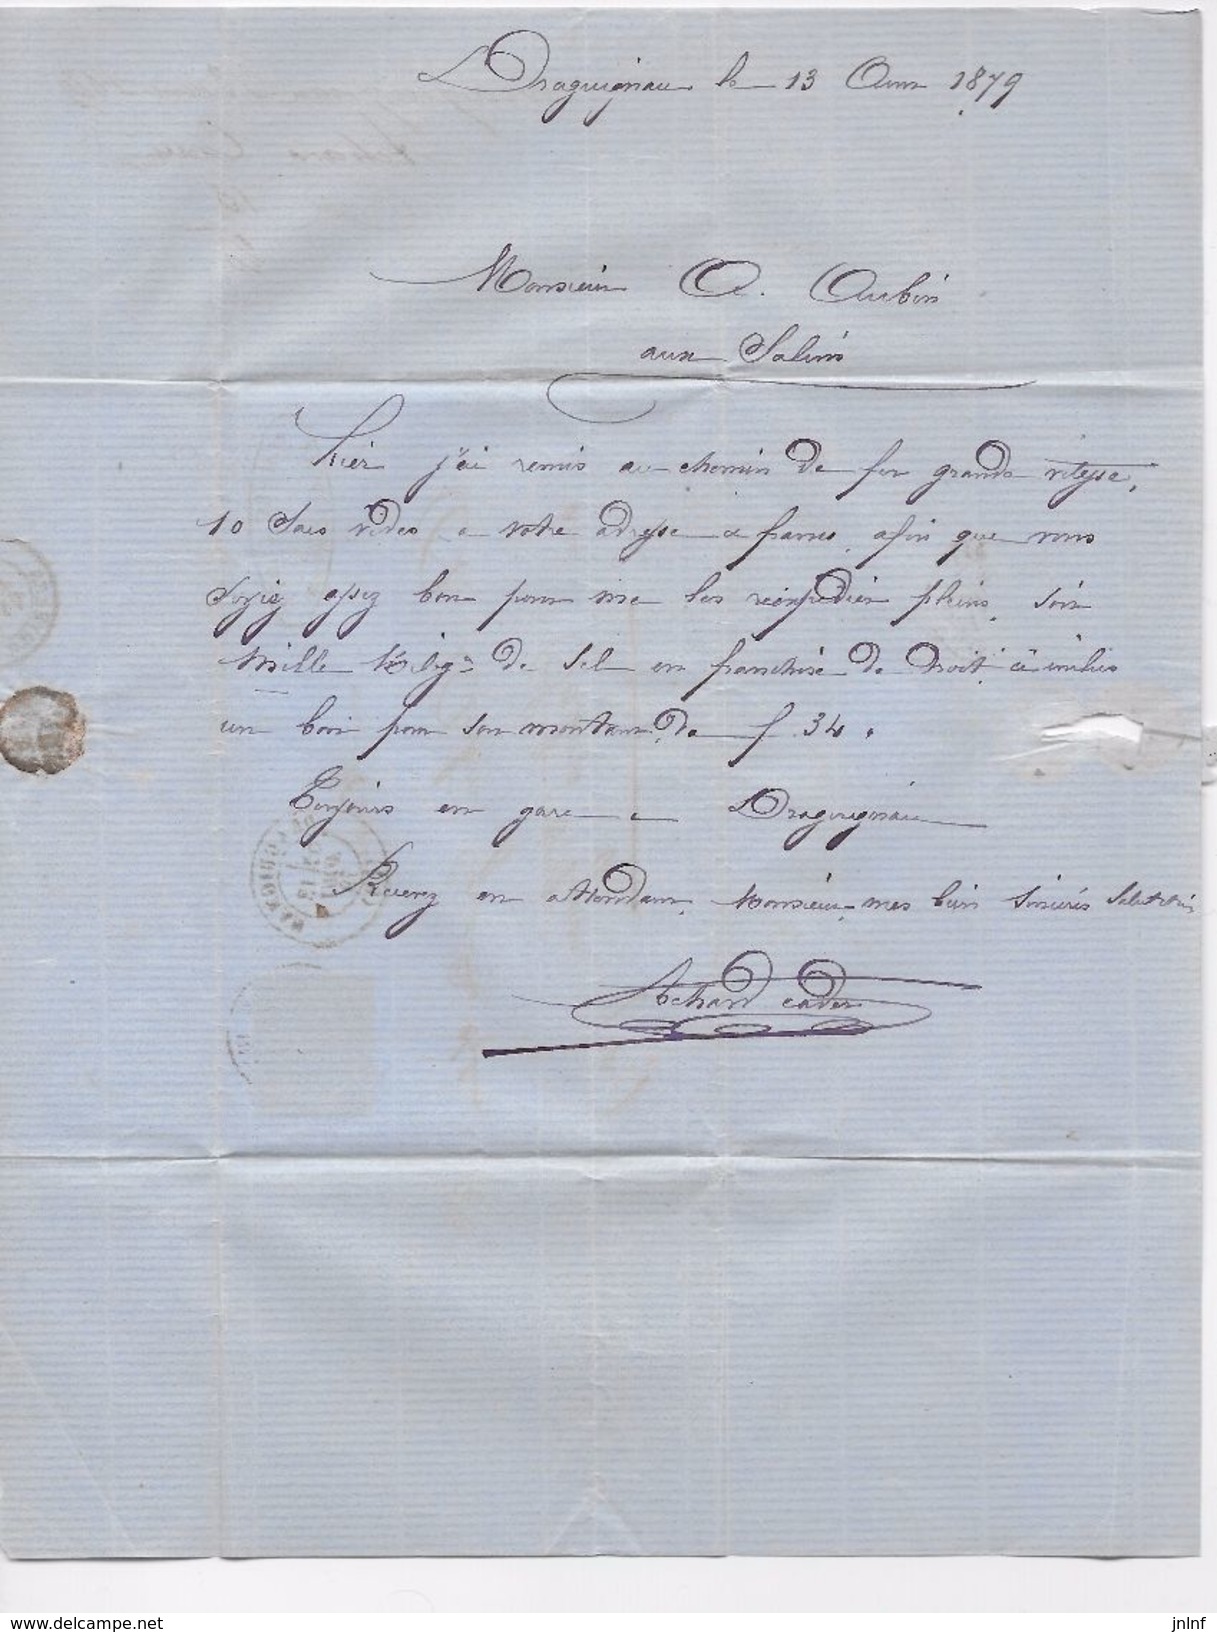 Draguignan le 13 Aout 1879
Monsieur A. Aubin
aux Salins
hier j'ai remis au chemin de fer grande vitesse,
10 Sacs vides a votre adresse & franco, afin que vous
Soyiez assez bon pour me les réexpédier pleins, Soit
Mille Kilog: de Sel en franchise de Droit, ci inclus
un bon pour Son montant de f 34.
Toujours en gare a Draguignan
Recevez en attendant, Monsieur, mes bien Sincères Salutations
Achard cadet
www.delcampe.net
jnlnf